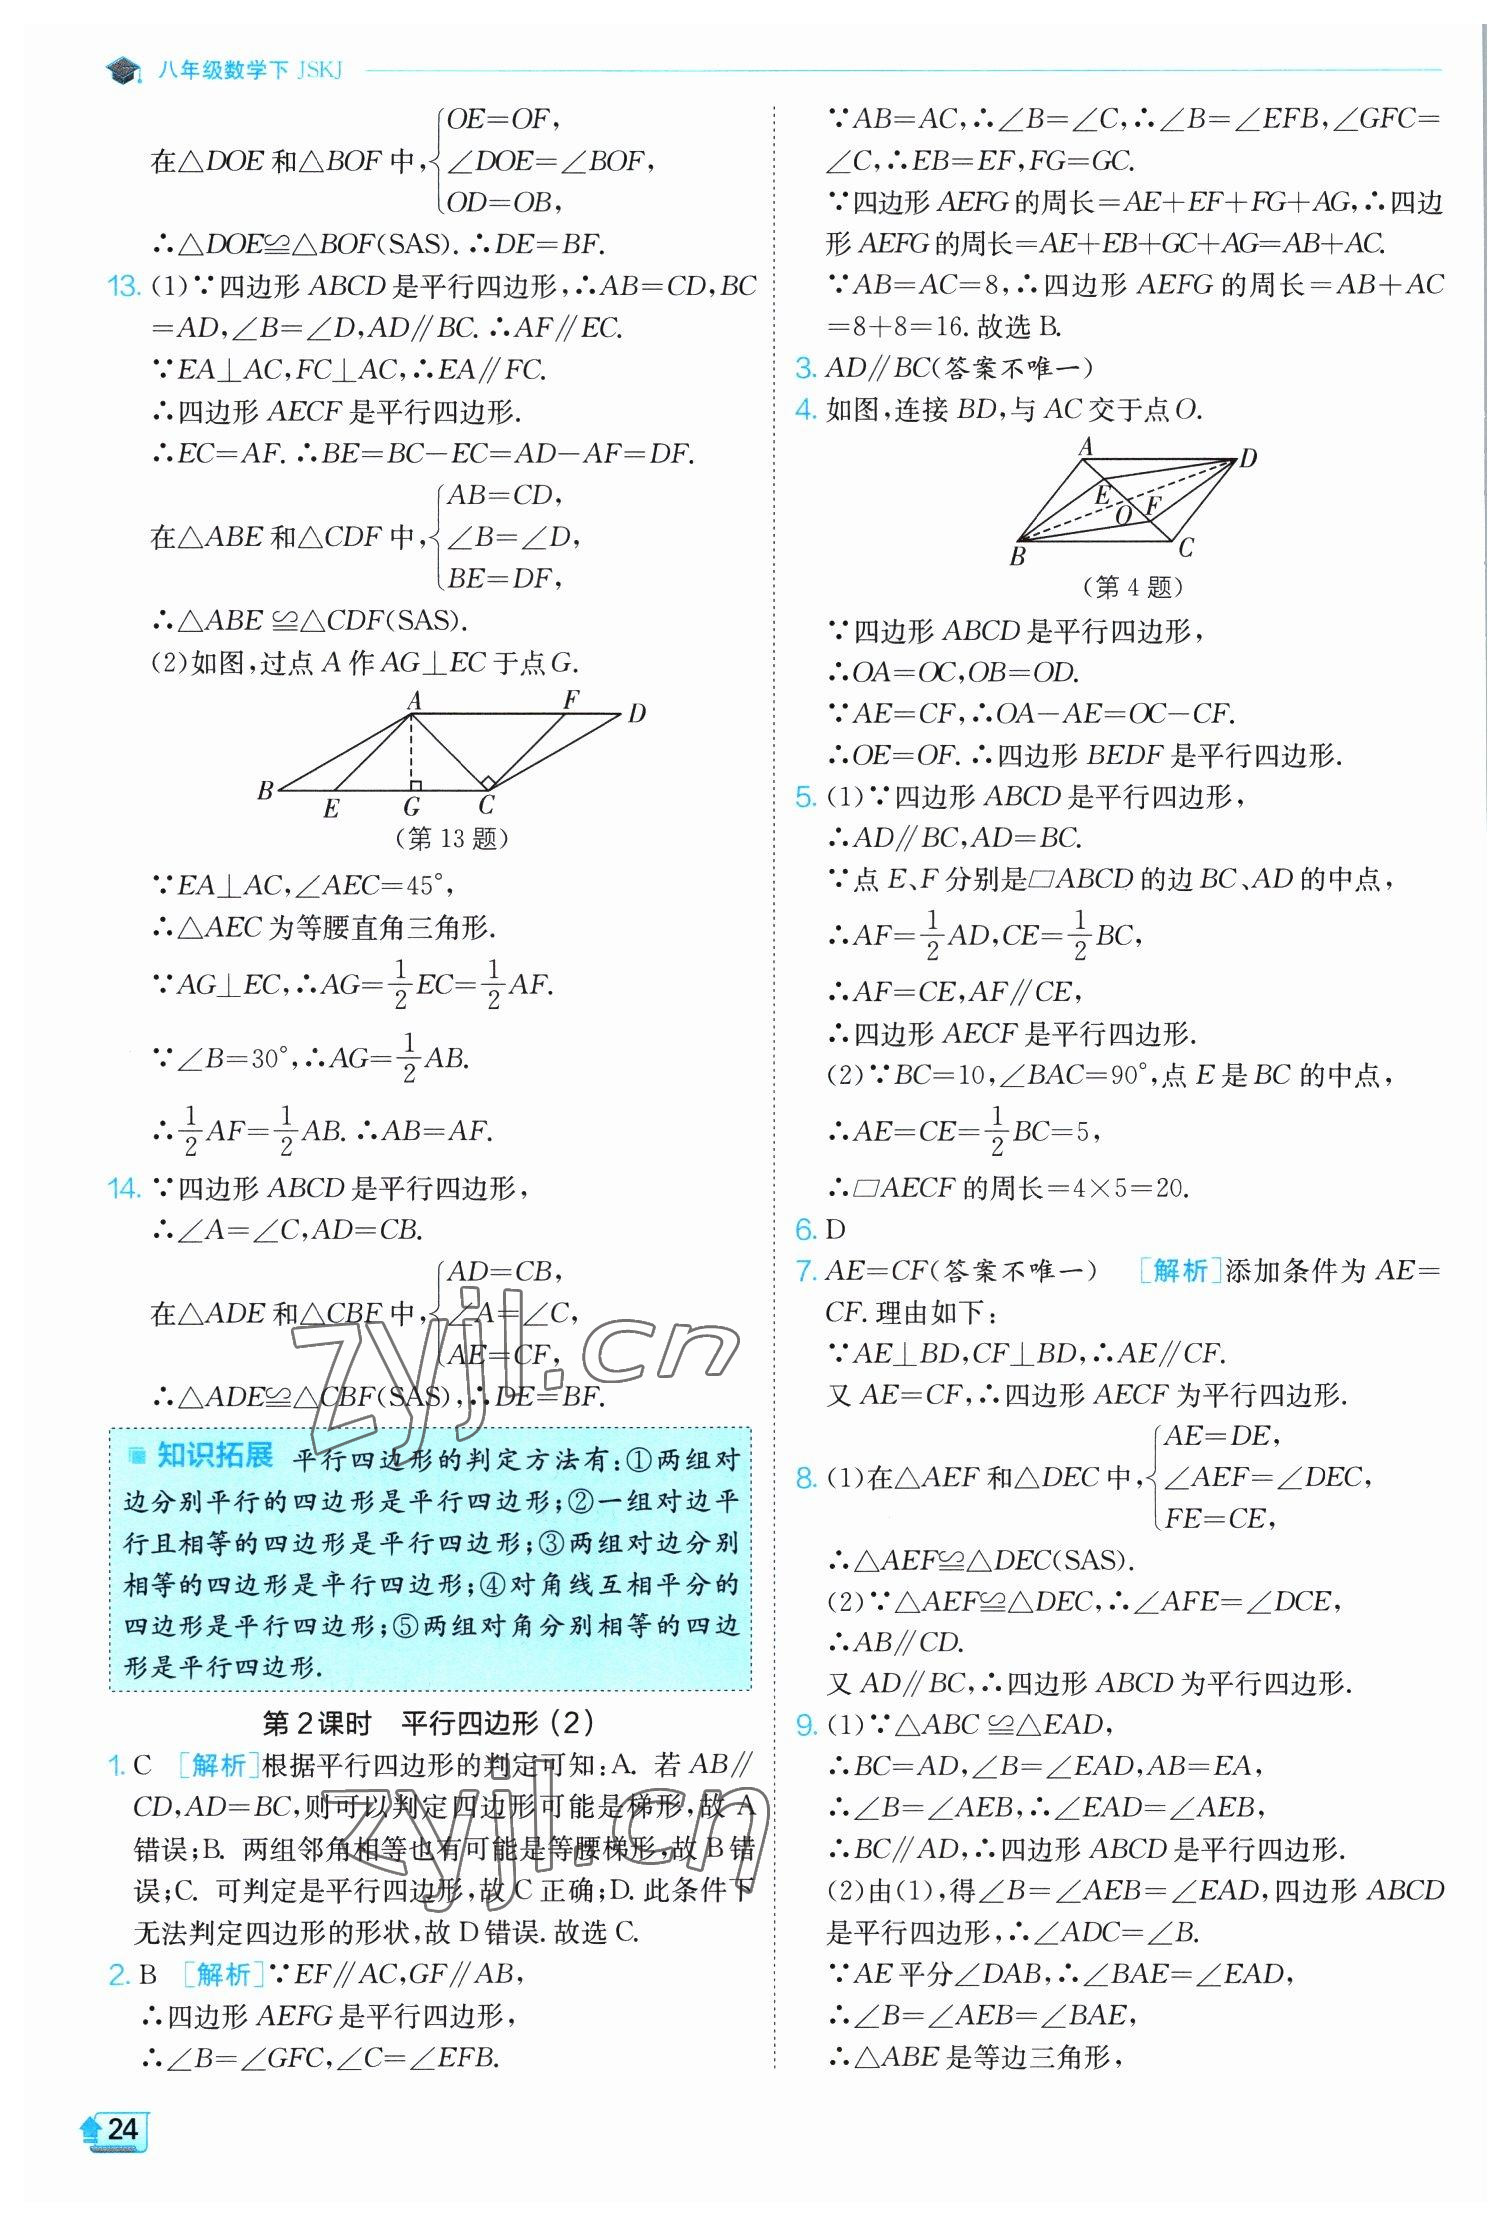 八年级数学下 JSKJ
在△DOE 和△BOF 中,{OE=OF,
∠DOE=∠BOF,
OD=OB,
∴△DOE≌△BOF(SAS). ∴DE=BF.
13. (1)∵四边形 ABCD 是平行四边形,∴AB=CD,BC
=AD,∠B=∠D,AD∥BC. ∴AF∥EC.
∵EA⊥AC,FC⊥AC,∴EA∥FC.
∴四边形 AECF 是平行四边形.
∴EC=AF. ∴BE=BC−EC=AD−AF=DF.
在△ABE 和△CDF 中,{AB=CD,
∠B=∠D,
BE=DF,
∴△ABE ≌△CDF(SAS).
(2)如图,过点 A 作 AG⊥EC 于点 G.
A F D
B E G C
(第 13 题)
∵EA⊥AC,∠AEC=45°,
∴△AEC 为等腰直角三角形.
∵AG⊥EC,∴AG=1/2 EC=1/2 AF.
∵∠B=30°,∴AG=1/2 AB.
∴1/2 AF=1/2 AB. ∴AB=AF.
14. ∵四边形 ABCD 是平行四边形,
∴∠A=∠C,AD=CB.
在△ADE 和△CBF 中,{AD=CB,
∠A=∠C,
AE=CF,
∴△ADE≌△CBF(SAS),∴DE=BF.
知识拓展 平行四边形的判定方法有:①两组对
边分别平行的四边形是平行四边形;②一组对边平
行且相等的四边形是平行四边形;③两组对边分别
相等的四边形是平行四边形;④对角线互相平分的
四边形是平行四边形;⑤两组对角分别相等的四边
形是平行四边形.
第 2 课时 平行四边形(2)
1. C [解析]根据平行四边形的判定可知:A. 若 AB∥
CD,AD=BC,则可以判定四边形可能是梯形,故 A
错误;B. 两组邻角相等也有可能是等腰梯形,故 B 错
误;C. 可判定是平行四边形,故 C 正确;D. 此条件下
无法判定四边形的形状,故 D 错误. 故选 C.
2. B [解析]∵EF∥AC,GF∥AB,
∴四边形 AEFG 是平行四边形,
∴∠B=∠GFC,∠C=∠EFB.
24
∵AB=AC,∴∠B=∠C,∴∠B=∠EFB,∠GFC=
∠C,∴EB=EF,FG=GC.
∵四边形 AEFG 的周长=AE+EF+FG+AG,∴四边
形 AEFG 的周长=AE+EB+GC+AG=AB+AC.
∵AB=AC=8,∴四边形 AEFG 的周长=AB+AC
=8+8=16. 故选 B.
3. AD∥BC(答案不唯一)
4. 如图,连接 BD,与 AC 交于点 O.
A D
E F
O
B C
(第 4 题)
∵四边形 ABCD 是平行四边形,
∴OA=OC,OB=OD.
∵AE=CF,∴OA−AE=OC−CF.
∴OE=OF. ∴四边形 BEDF 是平行四边形.
5. (1)∵四边形 ABCD 是平行四边形,
∴AD∥BC,AD=BC.
∵点 E、F 分别是▱ABCD 的边 BC、AD 的中点,
∴AF=1/2 AD,CE=1/2 BC,
∴AF=CE,AF∥CE,
∴四边形 AECF 是平行四边形.
(2)∵BC=10,∠BAC=90°,点 E 是 BC 的中点,
∴AE=CE=1/2 BC=5,
∴▱AECF 的周长=4×5=20.
6. D
7. AE=CF(答案不唯一) [解析]添加条件为 AE=
CF. 理由如下:
∵AE⊥BD,CF⊥BD,∴AE∥CF.
又 AE=CF,∴四边形 AECF 为平行四边形.
8. (1)在△AEF 和△DEC 中,{AE=DE,
∠AEF=∠DEC,
FE=CE,
∴△AEF≌△DEC(SAS).
(2)∵△AEF≌△DEC,∴∠AFE=∠DCE,
∴AB∥CD.
又 AD∥BC,∴四边形 ABCD 为平行四边形.
9. (1)∵△ABC ≌△EAD,
∴BC=AD,∠B=∠EAD,AB=EA,
∴∠B=∠AEB,∴∠EAD=∠AEB,
∴BC∥AD,∴四边形 ABCD 是平行四边形.
(2)由(1),得∠B=∠AEB=∠EAD,四边形 ABCD
是平行四边形,∴∠ADC=∠B.
∵AE 平分∠DAB,∴∠BAE=∠EAD,
∴∠B=∠AEB=∠BAE,
∴△ABE 是等边三角形,
zyjl.cn
zyjl.cn